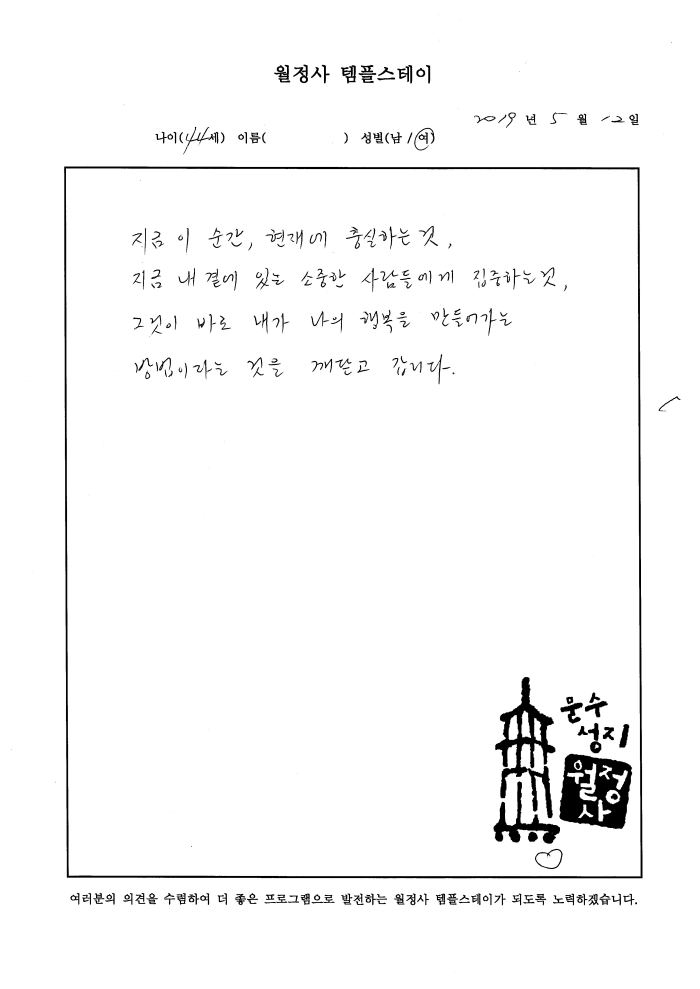 월정사 템플스테이
2019 년 5 월 12 일
나이(44세) 이름( ) 성별(남 / 여)
지금 이 순간, 현재에 충실하는 것,
지금 내 곁에 있는 소중한 사람들에게 집중하는 것,
그것이 바로 내가 나의 행복을 만들어가는
방법이라는 것을 깨닫고 갑니다.
문수
성지
월정
사
여러분의 의견을 수렴하여 더 좋은 프로그램으로 발전하는 월정사 템플스테이가 되도록 노력하겠습니다.